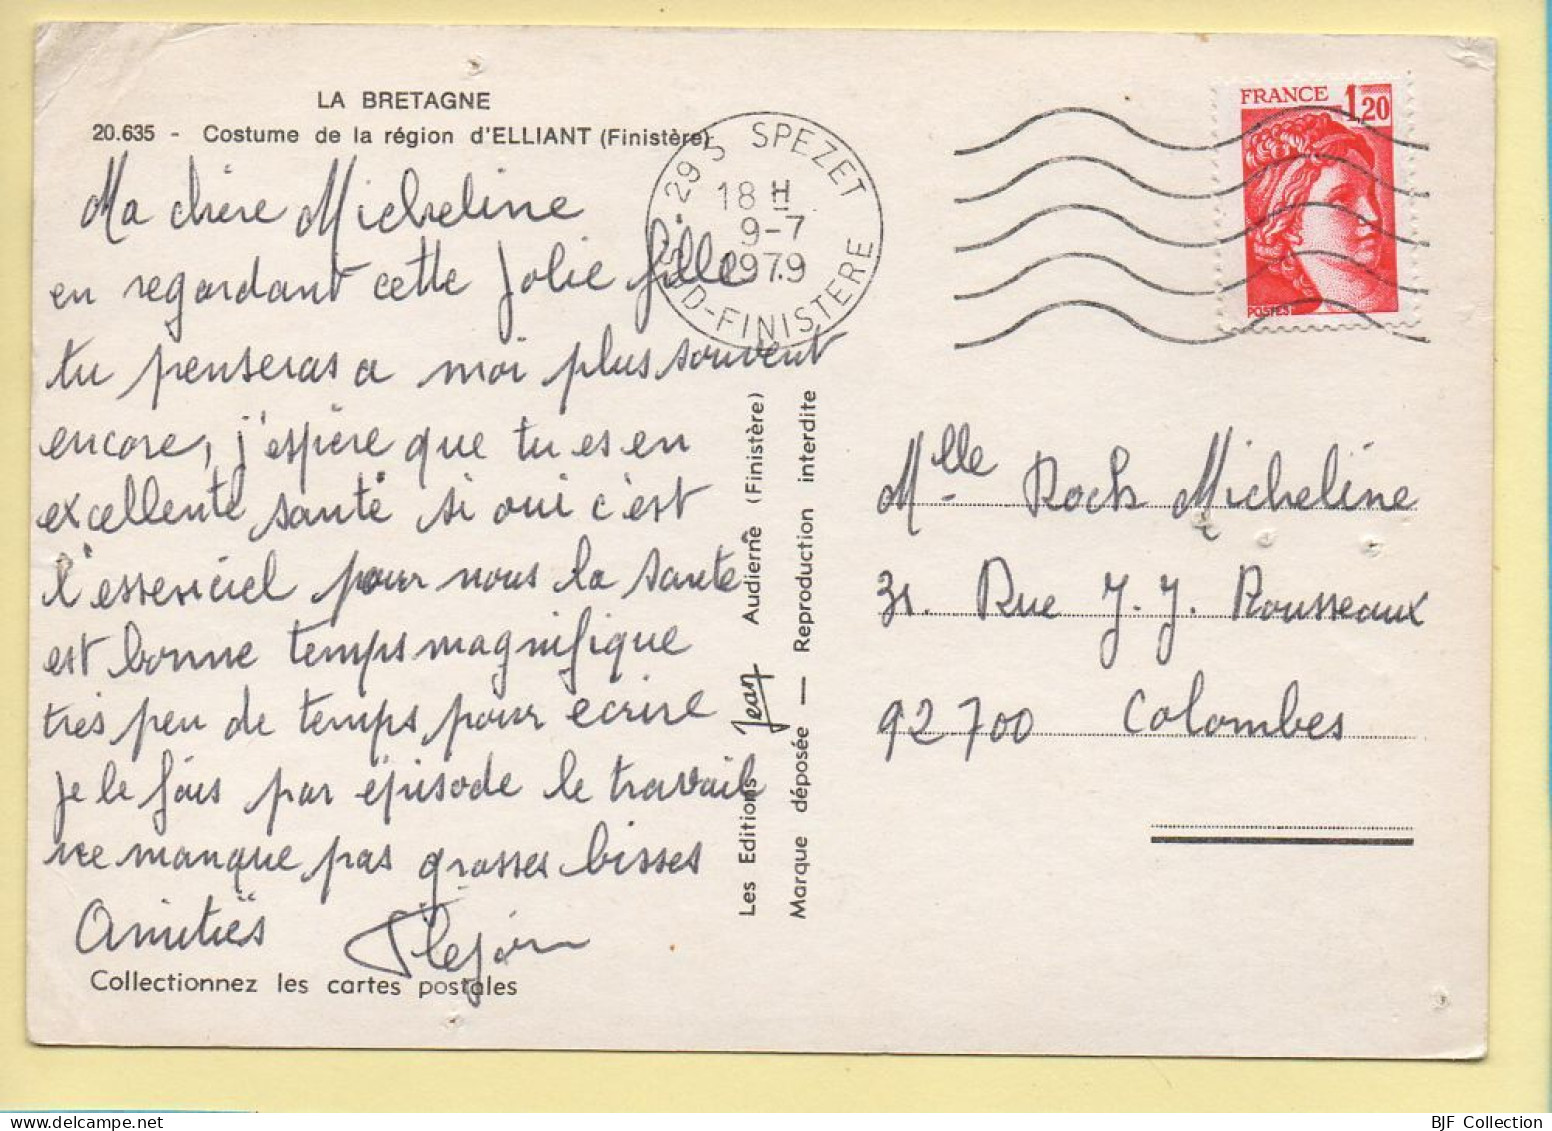 LA BRETAGNE
20.635 - Costume de la région d'ELLIANT (Finistère)
Ma chère Micheline
en regardant cette jolie fille
tu penseras a moi plus souvent
encore, j'espère que tu es en
excellente santé si oui c'est
l'essenciel pour nous la sante
est bonne temps magnifique
très peu de temps pour ecrire
je le fais par épisode le travail
ne manque pas grosses bisses
Amitiés
Collectionnez les cartes postales
29 S SPEZET
18 H
9-7
1979
SUD-FINISTERE
FRANCE 1,20
POSTES
Les Editions Jean Audierne (Finistère)
Marque déposée — Reproduction interdite
Mlle Roch Micheline
31. Rue J. J. Rousseaux
92700 Colombes
BJF Collection